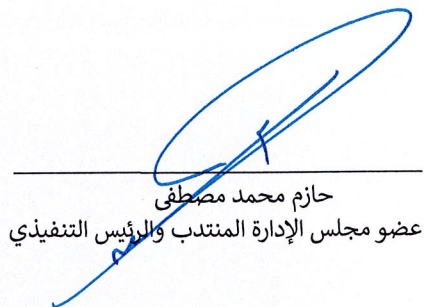 حازم محمد مصطفى
عضو مجلس الإدارة المنتدب والرئيس التنفيذي